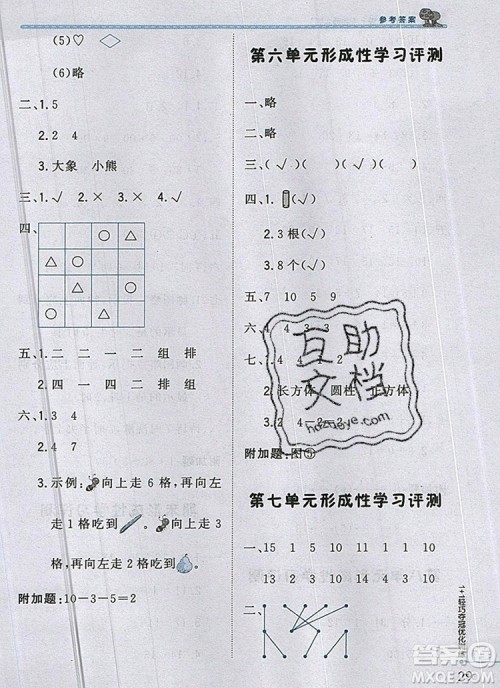 参考答案
(5)♡
(6)略
二、1.5
2.2 4
3.大象 小熊
三、1.√ 2.× 3.× 4.√
四、
五、二 二 一 二 组 排
四 一 四 二 排 组
六、1.3
2.4 7
3.示例：向上走6格,再向
左走1格吃到,向上走3
格,再向左走2格吃到。
附加题:10-3-5=2
第六单元形成性学习评测
一、略
二、略
三、( )(√)( )( )(√)
四、1.(√)
2.3根(√)
3.8个(√)
五、7 10 5 9
六、4 4 3 3
七、1.4 2 2
2.长方体 圆柱 正方体
3.2 4 2 2
附加题:图⑤
互助
文档
第七单元形成性学习评测
一、15 15 1 11 13 10
10 5 10 1 1 10
二、
29
答案圈
MXQE.COM